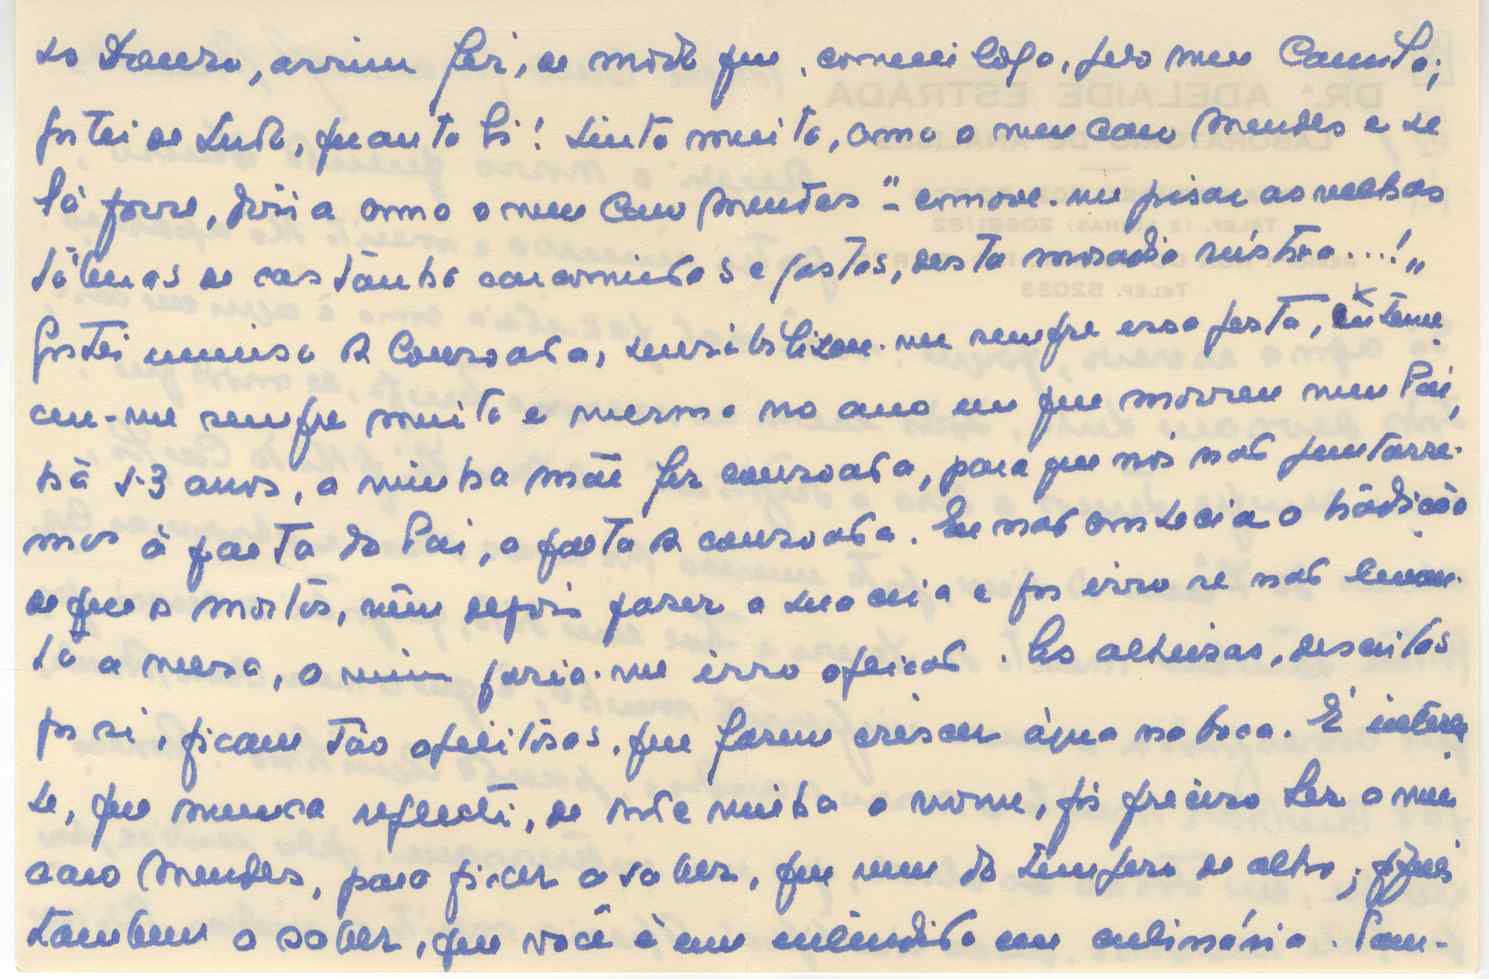 do Douro, assim fiz, de modo que, comecei logo, pelo meu Camilo;
gostei de tudo, quanto li! Sinto muito, como o meu caro Mendes e se
lá fosse, diria como o meu Caro Mendes "- comove-me pisar as velhas
tábuas de castanho carcomidas e gastas, desta moradia rústica...!"
Gostei imenso da Consoada, sensibilizou-me sempre essa festa, enterne-
ceu-me sempre muito e mesmo no ano em que morreu meu Pai,
há 13 anos, a minha mãe fez consoada, para que nós não juntasse-
mos à falta do Pai, a falta da consoada. Eu não conhecia a tradição
de que os mortos, vêm depois fazer a sua ceia e por isso se não levan-
ta a mesa, a mim faria-me isso aflição. As alheiras, descritas
por si, ficam tão apetitosas, que fazem crescer água na boca. É interessan
te, que nunca reflecti, de onde vinha o nome, foi preciso ler o meu
caro Mendes, para ficar a saber, que vem do tempero de alho; fiquei
também a saber, que você é um entendido em culinária. Tam-
DR.ª ADELAIDE ESTRADA
LABORATÓRIO DE ANÁLISES